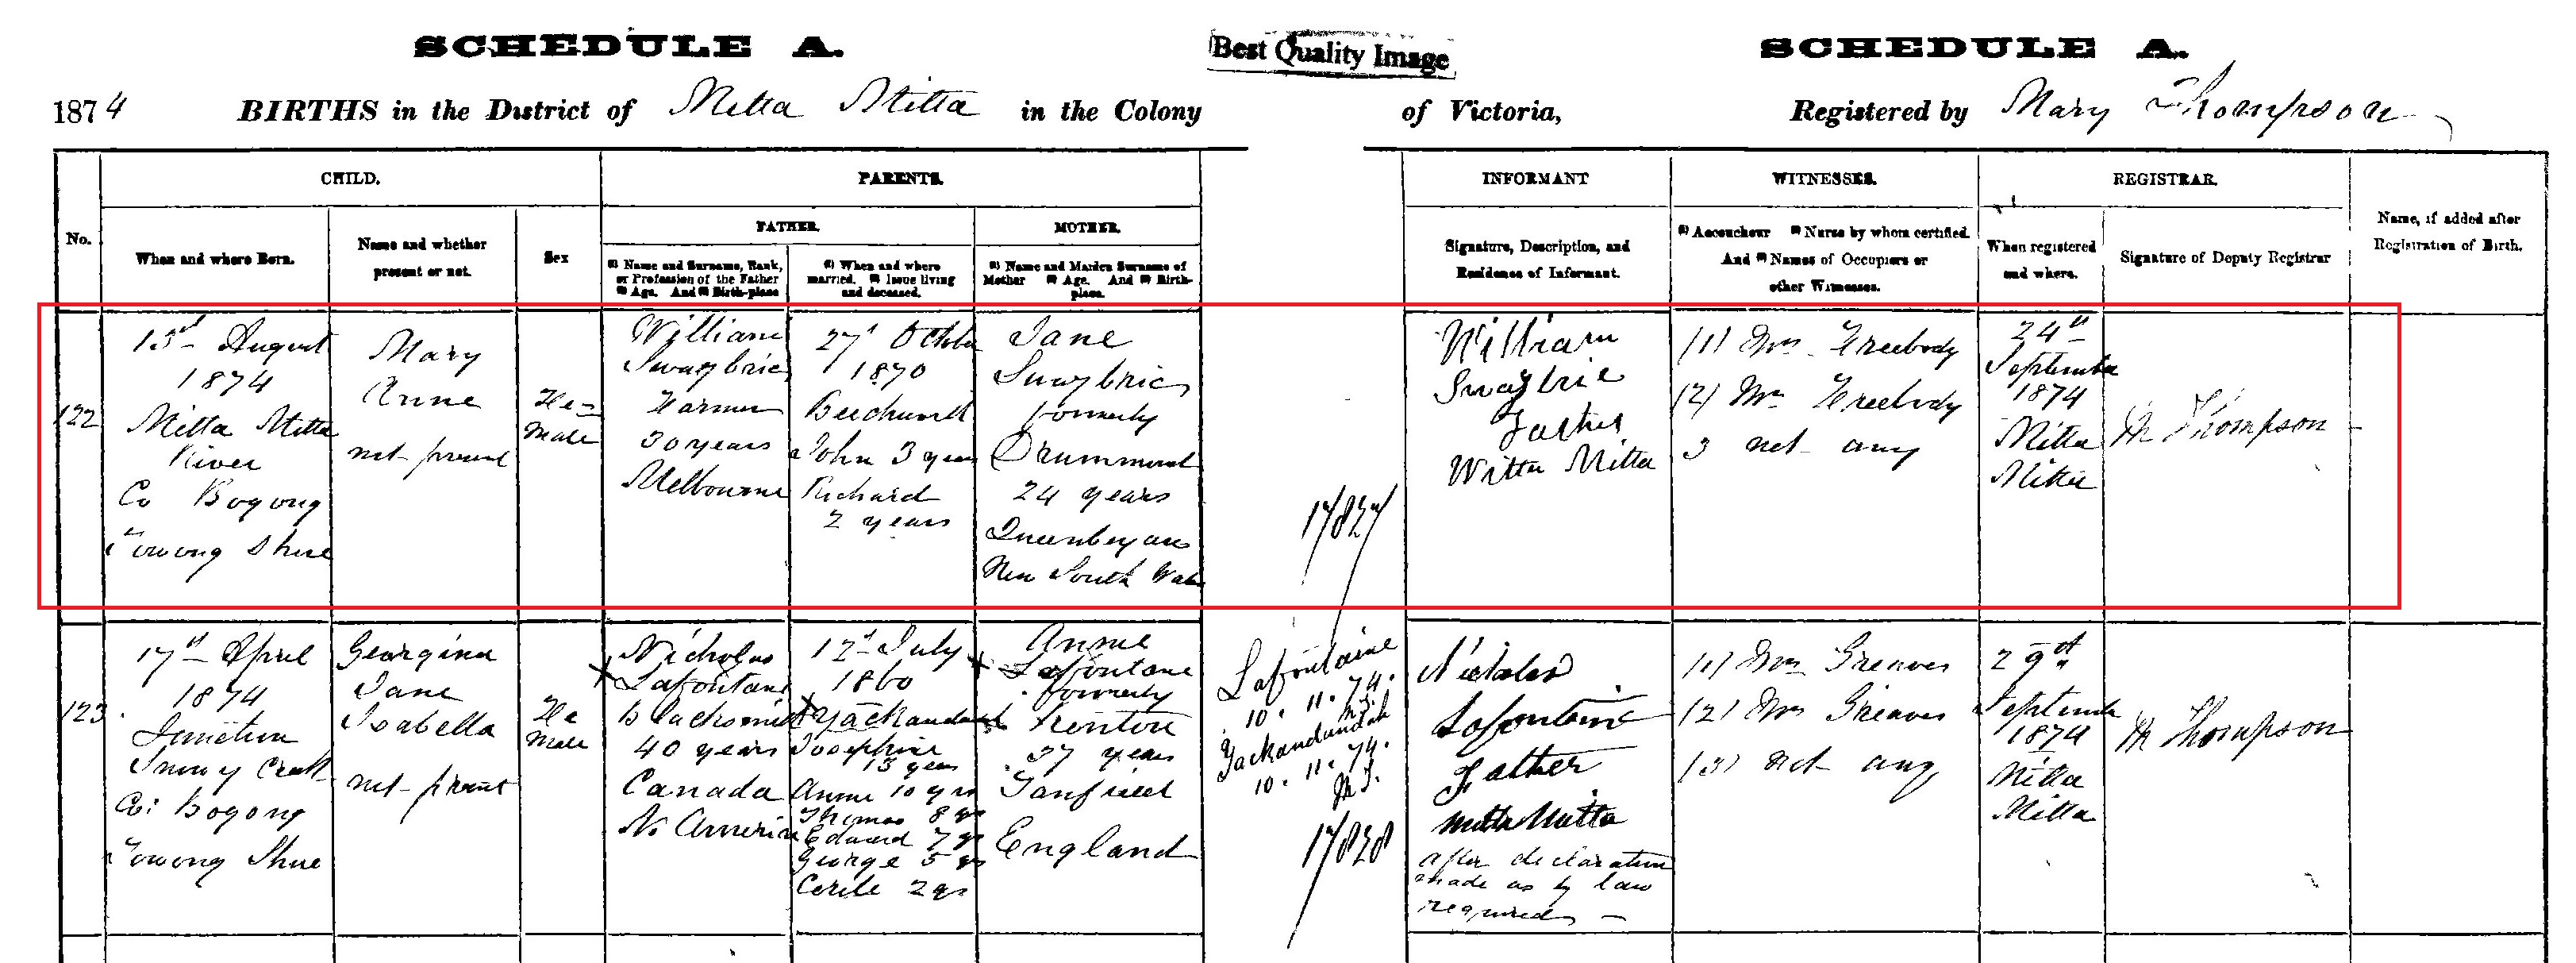 SCHEDULE A.
Best Quality Image
SCHEDULE A.
1874 BIRTHS in the District of Mitta Mitta in the Colony of Victoria, Registered by Mary Thompson
No.
CHILD.
When and where Born.
Name and whether
present or not.
Sex
PARENTS.
FATHER.
(1) Name and Surname, Rank,
or Profession of the Father
(2) Age. And (3) Birth-place
(1) When and where
married. (2) Issue living
and deceased.
MOTHER.
(1) Name and Maiden Surname of
Mother (2) Age. And (3) Birth-
place.
INFORMANT
Signature, Description, and
Residence of Informant.
WITNESSES.
(1) Accoucheur (2) Nurse by whom certified.
And (3) Names of Occupiers or
other Witnesses.
REGISTRAR.
When registered
and where.
Signature of Deputy Registrar
Name, if added after
Registration of Birth.
122
August
1874
Mitta Mitta
River
Co Bogong
Towong Shire
Mary
Anne
not present
Fe-
male
William
Swaybric
Farmer
30 years
Melbourne
27 October
1870
Beechworth
John 3 years
Richard
2 years
Jane
Swaybric
formerly
Drummond
24 years
Queenbeyan
New South Wales
17827
William
Father
Mitta Mitta
(1) Mrs Freebody
(2) Mrs Freebody
3 not any
24th
September
1874
Mitta
Mitta
M Thompson
123
17th April
1874
Junction
Snowy Creek
Co: Bogong
Towong Shire
Georgina
Jane
Isabella
not present
Fe
male
Nicholas
x Lafontane
Blacksmith
40 years
Canada
No America
12th July
1860
x Yackandandah
Josephine
13 years
Annie 10 yrs
Thomas 8 yrs
Edward 7 yrs
George 5 yrs
Cecile 2 yrs
Annie
x Lafontane
formerly
Kenton
37 years
Tanfield
England
Lafontaine
10. 11. 74.
M.T.
Yackandandah
10. 11. 74.
M.T.
17828
Nicholas
Lafontaine
Father
Mitta Mitta
after declaration
made as by law
required
(1) Mrs Greaves
(2) Mrs Greaves
(3) not any
29th
September
1874
Mitta
Mitta
M Thompson